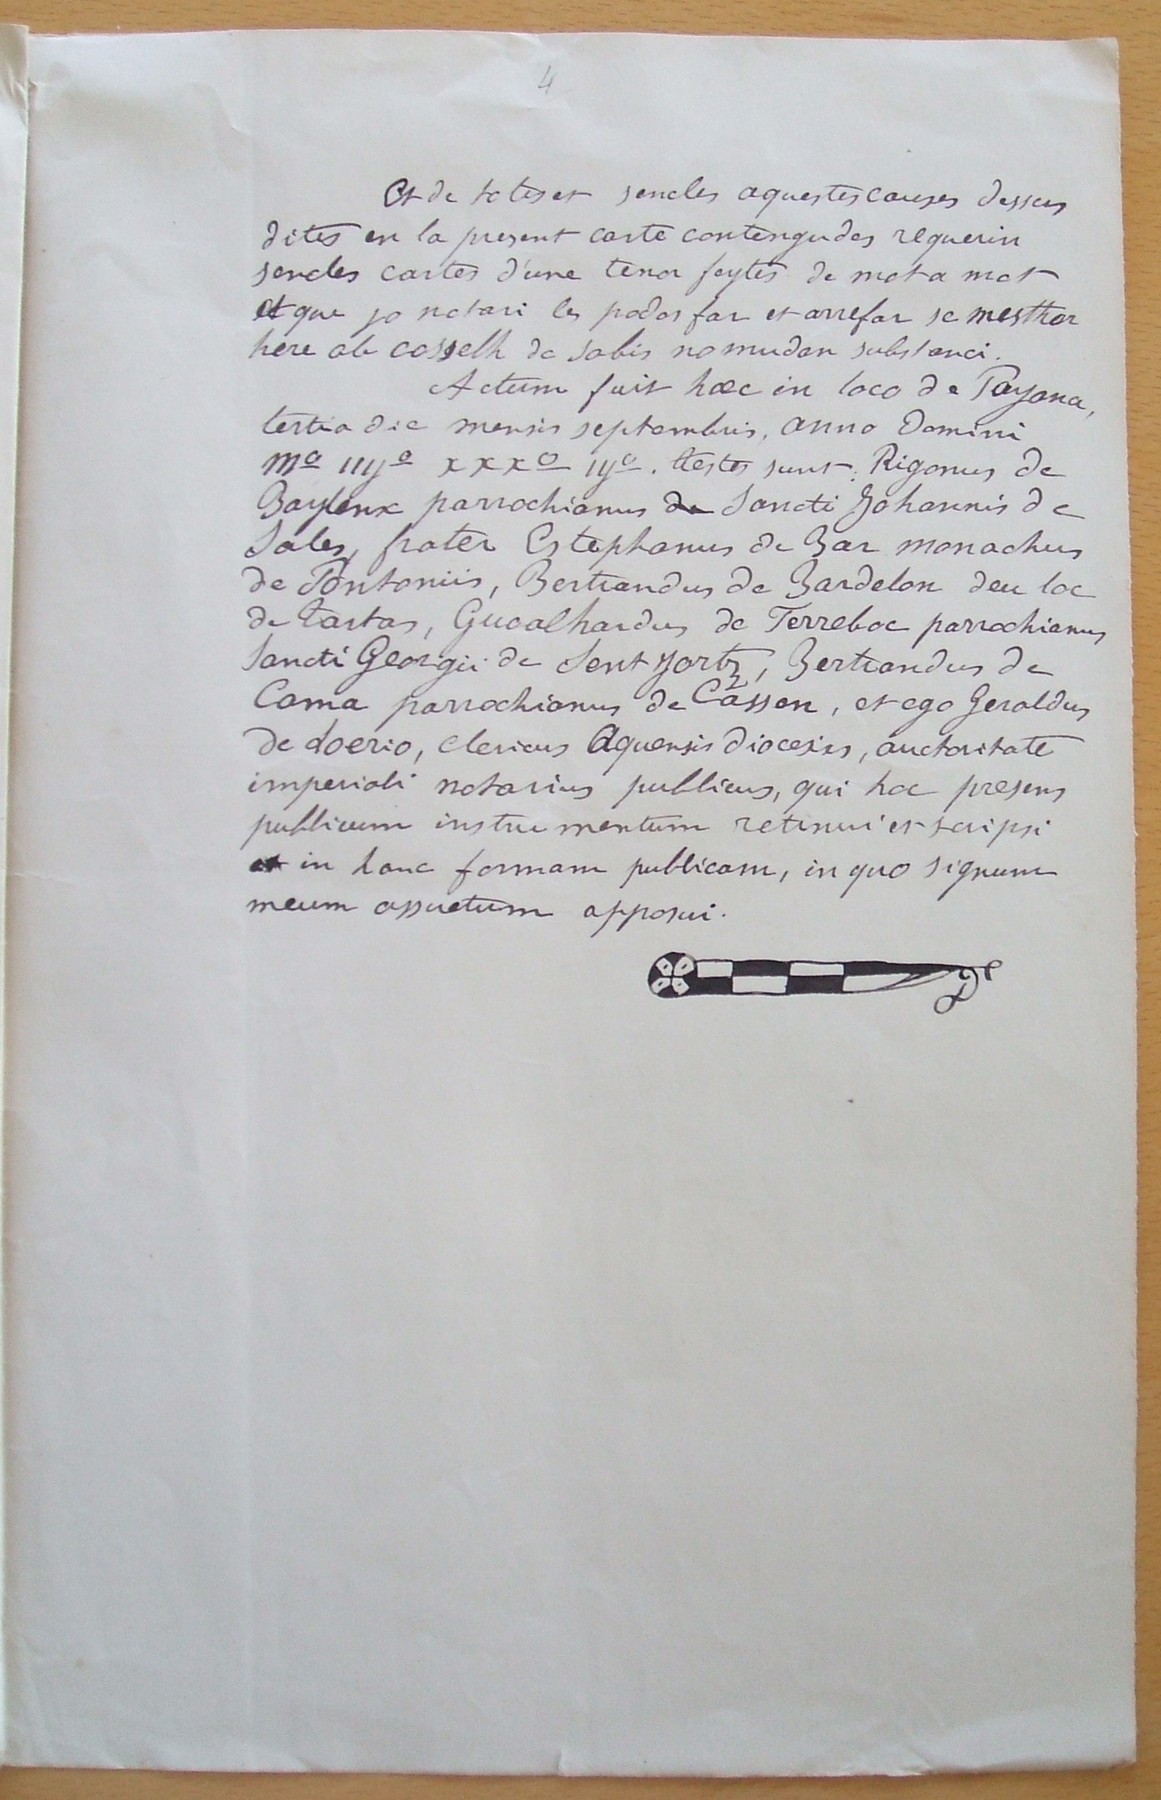 4
Et de totes et sencles aquestes causes dessus
dites en la present carte contengudes requerin
sencles cartes d'une tenor feytes de mot a mot
et que jo notari les podos far et arrefar se mesthor
here ab cosselh de sabis no mudan substanci.
Actum fuit hæc in loco de Poyana,
tertia die mensis septembris, anno Domini
Mo iiijo xxxo ijo. testes sunt: Rigonus de
Baylenx parrochianus de Sancti Johannis de
Sales, frater Estephanus de Bar monachus
de Pontoniis, Bertrandus de Bardelon deu loc
de Tartas, Guoalhardus de Terreboc parrochianus
Sancti Georgii de Sent Jortz, Bertrandus de
Cama parrochianus de Cassen, et ego Geraldus
de Loerio, clericus Aquensis diocesis, auctoritate
imperiali notarius publicus, qui hoc presens
publicum instrumentum retinui et scripsi
et in hanc formam publicam, in quo signum
meum assuetum apposui.